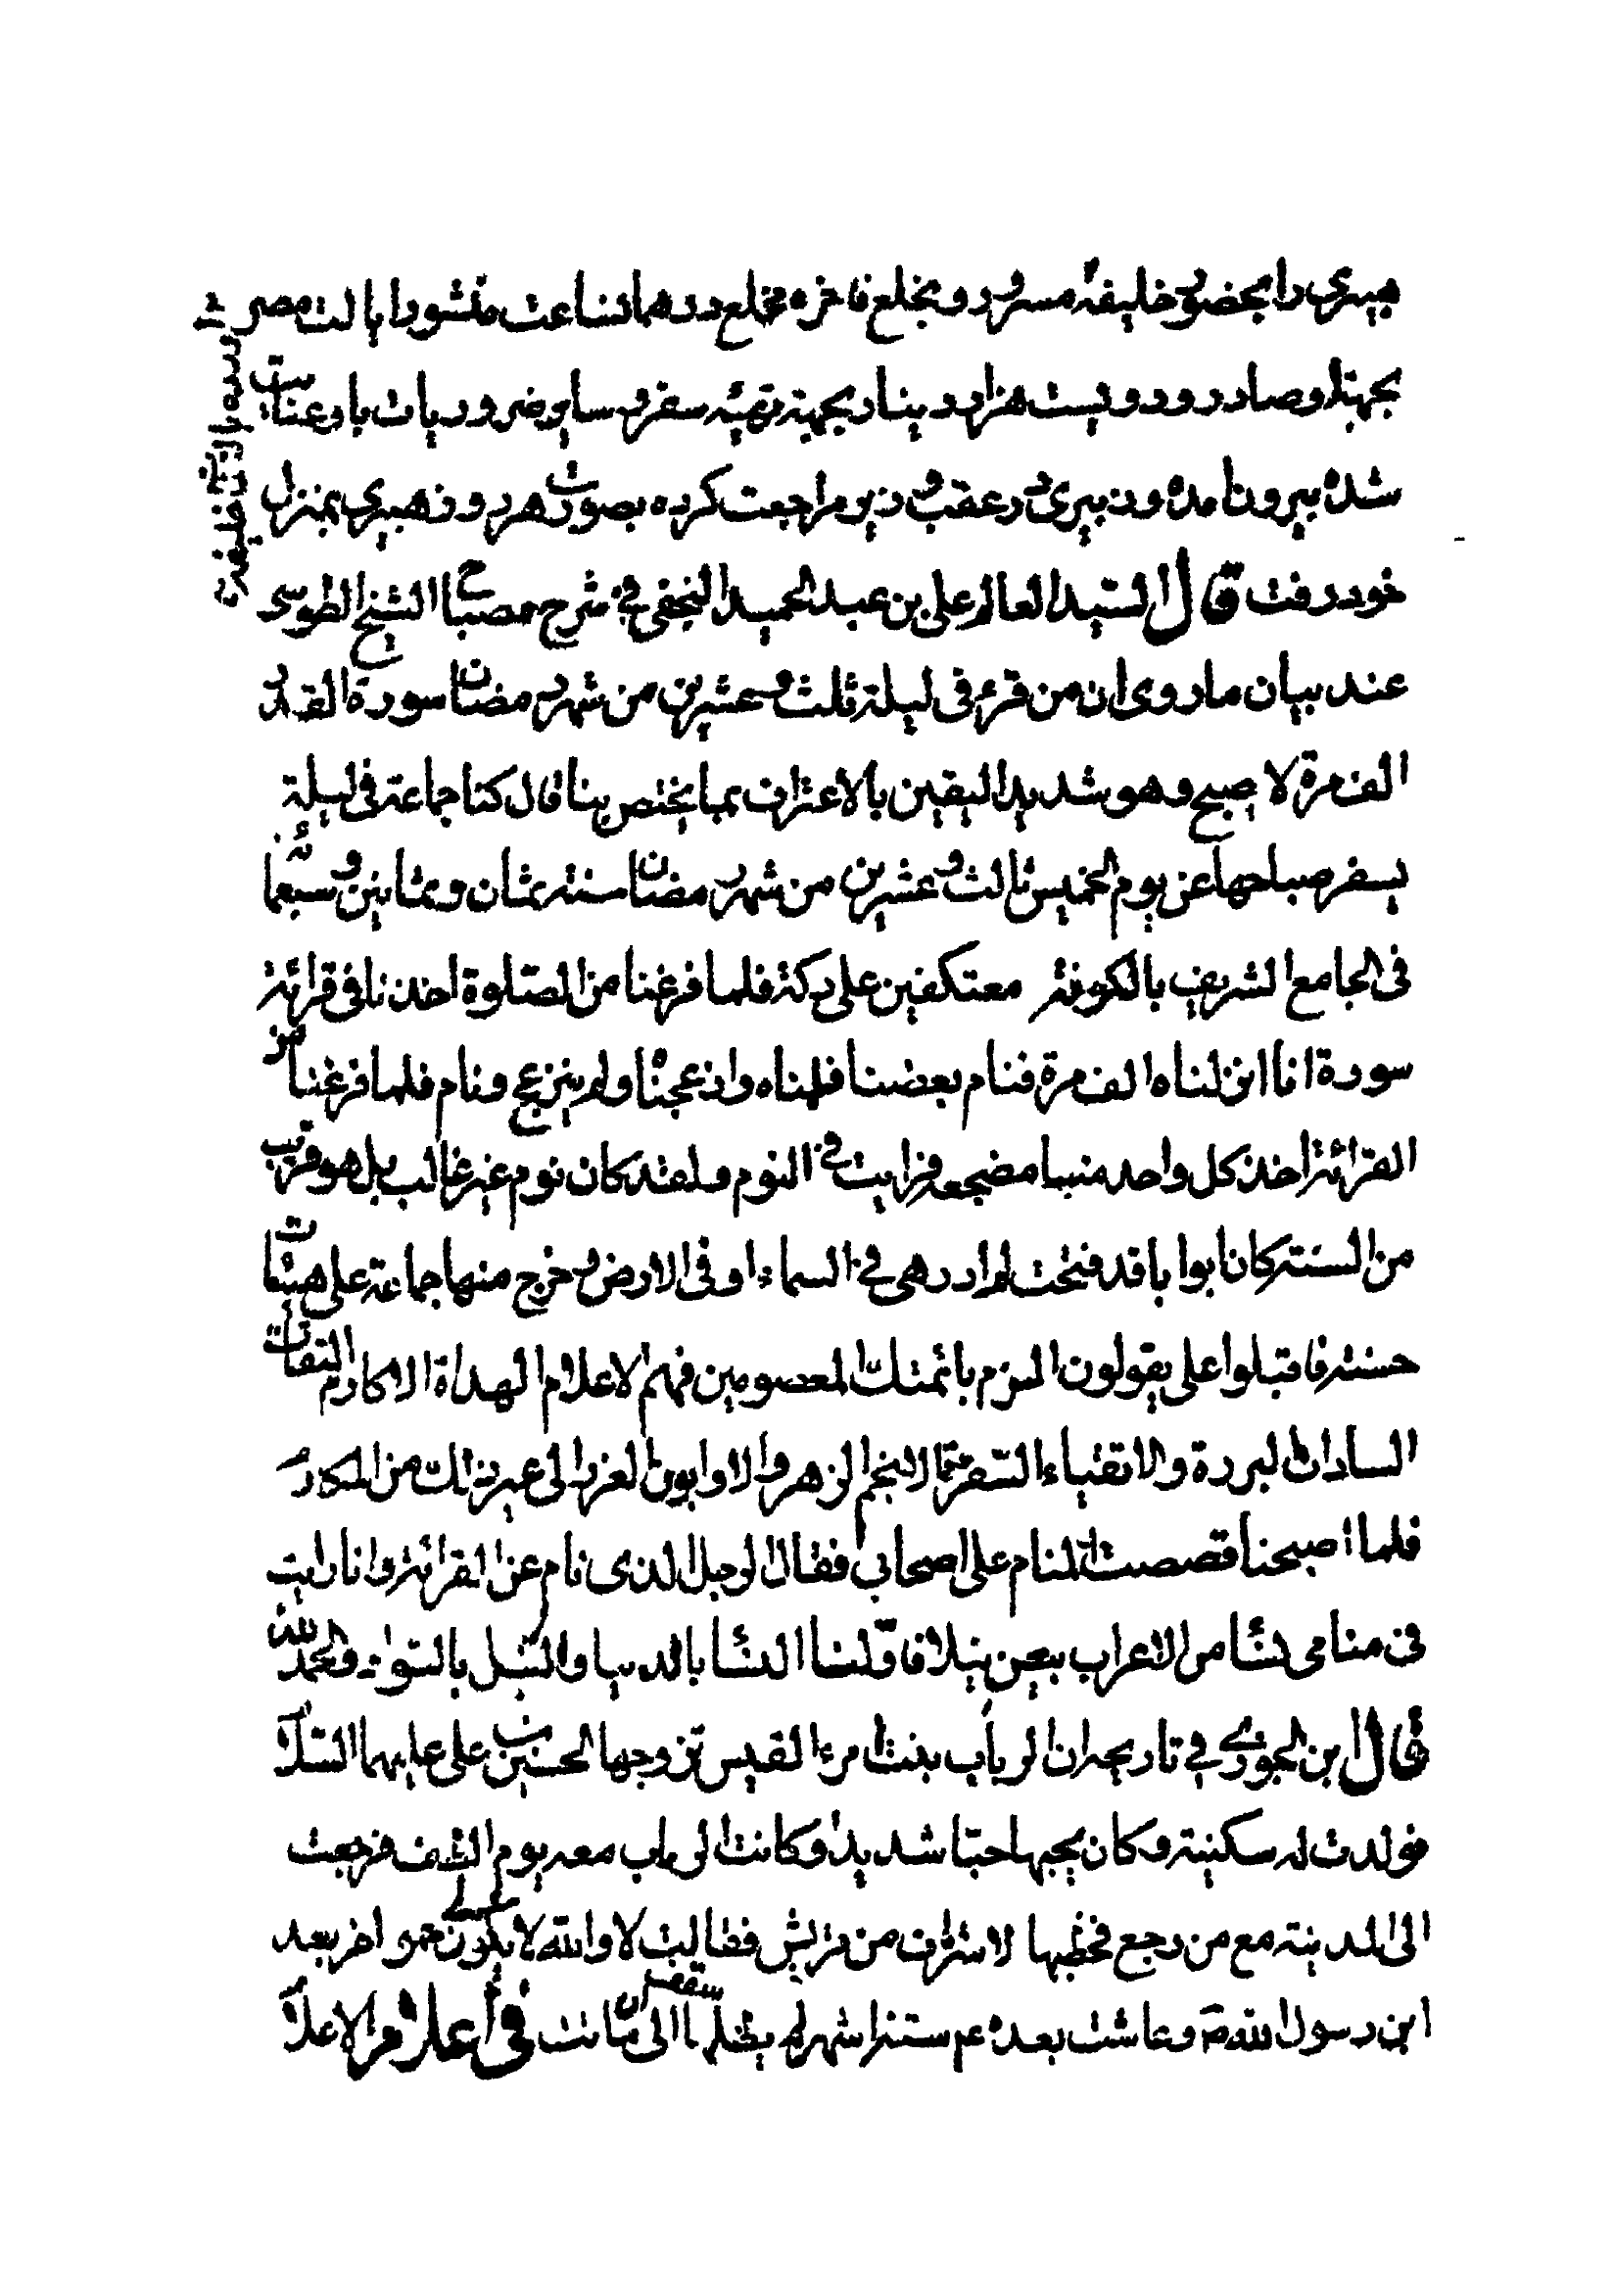 هبیری را بحضور خلیفهٔ مسرور و بخلع فاخره مخلع در همانساعت منشور ایالت مصر
بجهة او صادر و دویست هزار دینار بجهة تهیئه سفر و سایر ضروریات باو عنایت
شده بیرون آمده و زبیری در عقب وزیر مراجعت کرده بصورت هر دو نزد هبیری بمنزل
خود رفت قال السید العالم علی بن عبد الحمید النجفی فی شرح مصباح الشیخ الطوسی
عند بیان ما روی ان من قرء فی لیلة ثلث و عشرین من شهر رمضان سورة القدر
الف مرة لاصبح وهو شدید الیقین بالاعتراف بما یختص بنا قال کنا جماعة فی لیلة
یسفر صباحها عن یوم الخمیس ثالث و عشرین من شهر رمضان سنة ثمان و ثمانین و سبعمائة
فی الجامع الشریف بالکوفة معتکفین علی دکة فلما فرغنا من الصلوة اخذنا فی قرائة
سورة انا انزلناه الف مرة فنام بعضنا فلمناه وازعجناه ولم ینزعج ونام فلما فرغنا من
القرائة اخذ کل واحد منا مضجعه فرایت فی النوم ولقد کان نوم غیر غالب بل هو قریب
من السنة کان ابوابا قد فتحت لم ادر هی فی السماء او فی الارض و خرج منها جماعة علی هیئات
حسنة فاقبلوا علی یقولون الزم بائمتک المعصومین فهم الاعلام الهداة الاکارم الثقات
السادات البررة والاتقیاء السفرة والانجم الزهر والاوابون الغر الی غیر ذلک من المکارم
فلما اصبحنا قصصت المنام علی اصحابی فقال الرجل الذی نام عن القرائة وانا رایت
فی منامی نسًا من الاعراب یبعن نیلا فاوّلنا النسا بالدنیا والنیل بالسواد والحمد لله
قال ابن الجوزی فی تاریخه ان الرباب بنت امرء القیس تزوجها الحسین بن علی علیهما السلام
فولدت له سکینة وکان یحبها حبّا شدیدا وکانت الرباب معه یوم الطف فرجعت
الی المدینة مع من رجع فخطبها الاشراف من قریش فقالت لا والله لا یکون لی حمو اخر بعد
ابن رسول الله ص وعاشت بعده ع م سنة اشهر لم یظلها سقف الی ان ماتت فی اعلام الاعلام